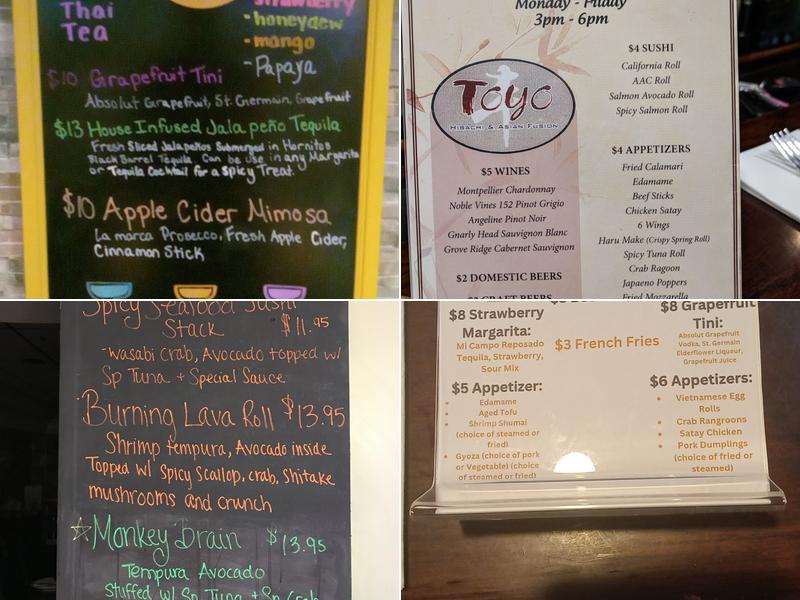 Thai
Tea
strawberry
-honeydew
-mango
-Papaya
$10 Grapefruit Tini
Absolut Grapefruit, St. Germain, Grapefruit
$13 House Infused Jalapeño Tequila
Fresh Sliced Jalapeños Submerged in Hornitos
Black Barrel Tequila. Can be use in any Margarita
or Tequila Cocktail for a Spicy Treat.
$10 Apple Cider Mimosa
La marca Prosecco, Fresh Apple Cider,
Cinnamon Stick
Monday - Friday
3pm - 6pm
Toyo
Hibachi & Asian Fusion
$5 WINES
Montpellier Chardonnay
Noble Vines 152 Pinot Grigio
Angeline Pinot Noir
Gnarly Head Sauvignon Blanc
Grove Ridge Cabernet Sauvignon
$2 DOMESTIC BEERS
CRAFT BEERS
$4 SUSHI
California Roll
AAC Roll
Salmon Avocado Roll
Spicy Salmon Roll
$4 APPETIZERS
Fried Calamari
Edamame
Beef Sticks
Chicken Satay
6 Wings
Haru Make (Crispy Spring Roll)
Spicy Tuna Roll
Crab Ragoon
Japaeno Poppers
Fried Mozzarella
Spicy Seafood Sushi
Stack $11.95
-wasabi crab, Avocado topped w/
Sp Tuna + Special Sauce
Burning Lava Roll $13.95
Shrimp tempura, Avocado inside
Topped w/ Spicy Scallop, crab, Shitake
mushrooms and crunch
☆Monkey Brain $13.95
Tempura Avocado
Stuffed w/ Sp Tuna + Sp Crab
$8 Strawberry
Margarita:
Mi Campo Reposado
Tequila, Strawberry,
Sour Mix
$5 Appetizer:
• Edamame
• Aged Tofu
• Shrimp Shumai
(choice of steamed or
fried)
• Gyoza (choice of pork
or Vegetable) (choice
of steamed or fried)
$3 French Fries
$8 Grapefruit
Tini:
Absolut Grapefruit
Vodka, St. Germain
Elderflower Liqueur,
Grapefruit Juice
$6 Appetizers:
• Vietnamese Egg
Rolls
• Crab Rangroons
• Satay Chicken
• Pork Dumplings
(choice of fried or
steamed)